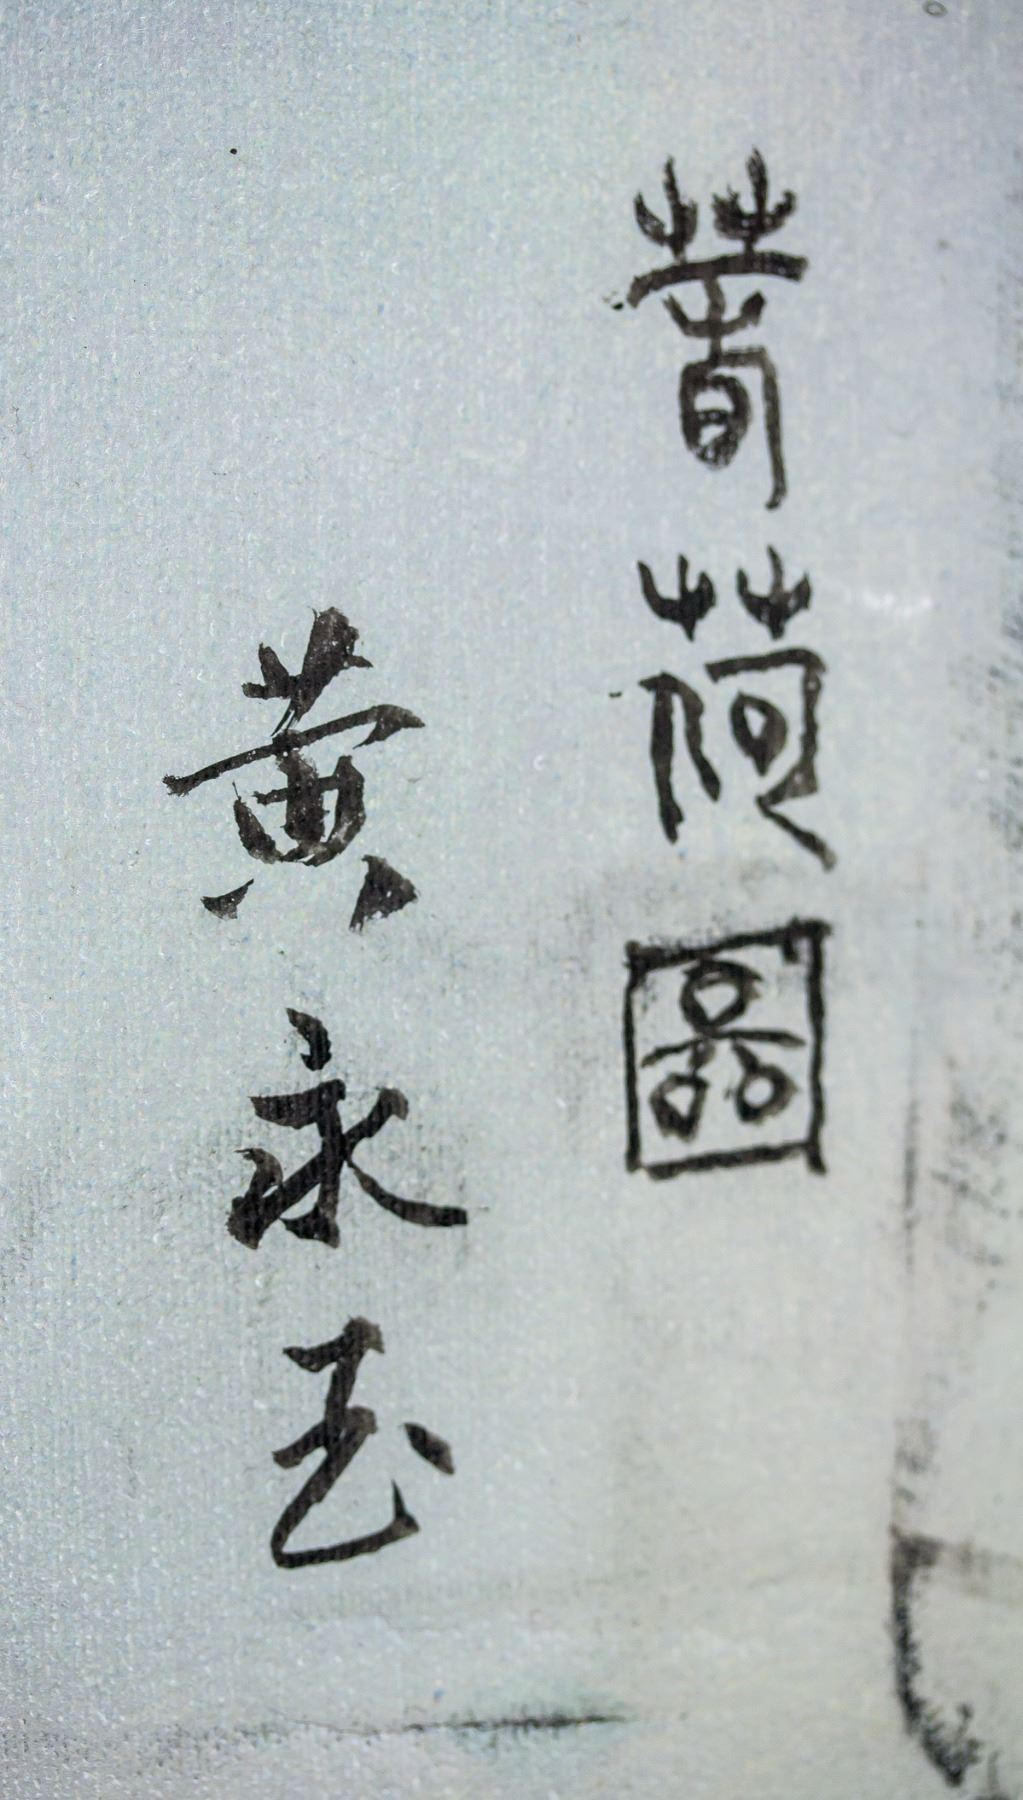 春荷圖
黄永玉